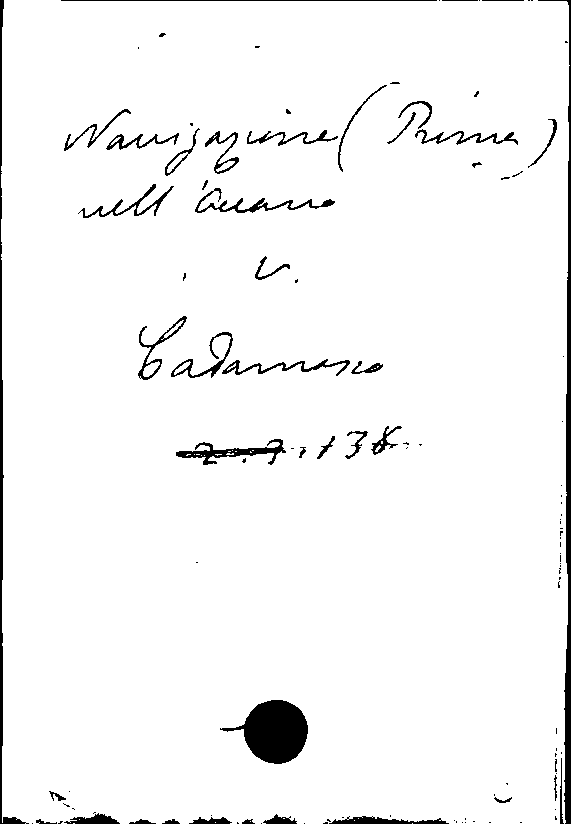 Navigazione (Prima)
nell'Oceano
v.
Cadamosto